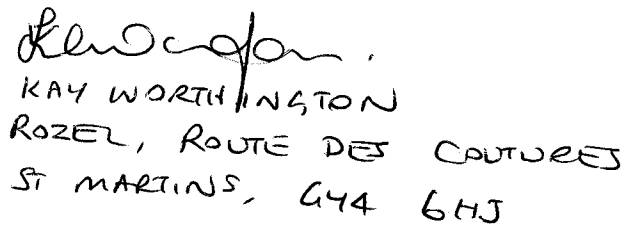 KAY WORTHINGTON
ROZEL, ROUTE DES COUTURES
ST MARTINS, GY4 6HJ